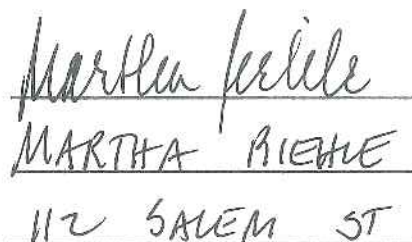 Martha Riehle
MARTHA RIEHLE
112 SALEM ST